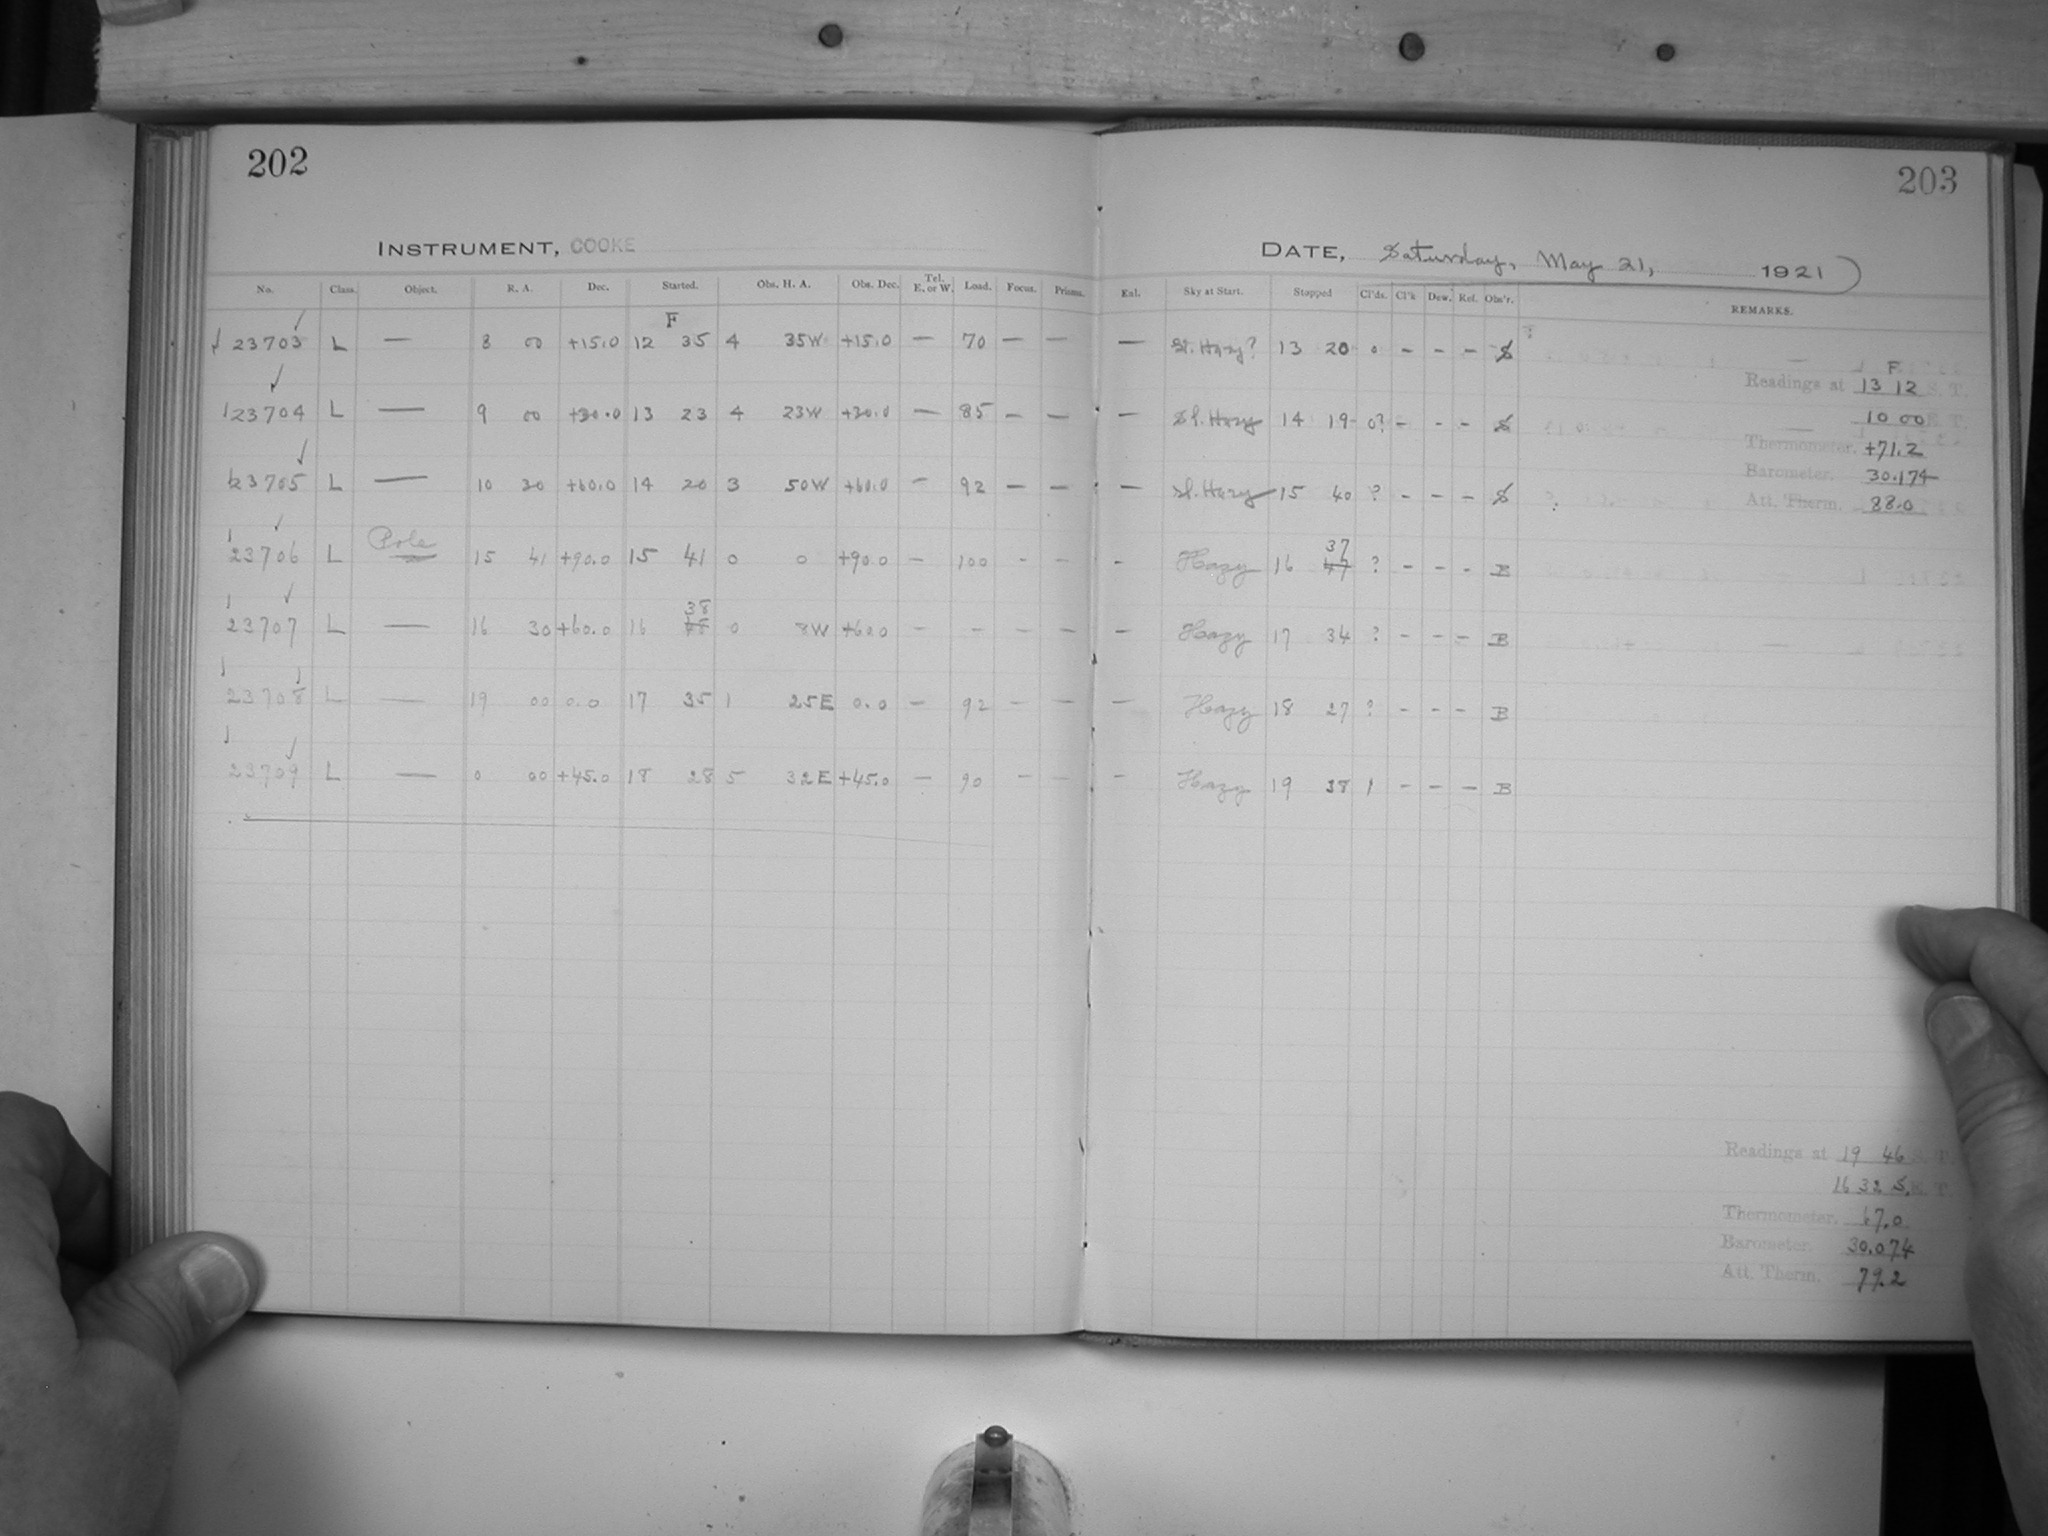 202
203
INSTRUMENT, COOKE
DATE, Saturday, May 21, 1921)
No. Class. Object. R. A. Dec. Started. Obs. H. A. Obs. Dec. Tel. E. or W. Load. Focus. Prisms. Enl. Sky at Start. Stopped Cl'ds. Cl'k Dew. Ref. Obs'r. REMARKS.
F
23703 L — 8 00 +15.0 12 35 4 35W +15.0 — 70 — — — Sl. Hazy? 13 20 0 - - - S
F
Readings at 13 12 S. T.
23704 L — 9 00 +30.0 13 23 4 23W +30.0 — 85 — — — Sl. Hazy 14 19 0? - - - S
10 00 E. T.
Thermometer. +71.2
Barometer. 30.174
23705 L — 10 30 +60.0 14 20 3 50W +60.0 — 92 — — — Sl. Hazy 15 40 ? - - - S
Att. Therm. 88.0
23706 L Pole 15 41 +90.0 15 41 0 0 +90.0 — 100 - - - Hazy 16 37 ? - - - B
23707 L — 16 30 +60.0 16 38 0 8W +60.0 — - - — — Hazy 17 34 ? - - - B
23708 L — 19 00 0.0 17 35 1 25E 0.0 — 92 — — — Hazy 18 27 ? - - - B
23709 L — 0 00 +45.0 18 28 5 32E +45.0 — 90 - - - Hazy 19 38 1 - - - B
Readings at 19 46 S. T.
16 32 S. E. T.
Thermometer. 67.0
Barometer. 30.074
Att. Therm. 79.2